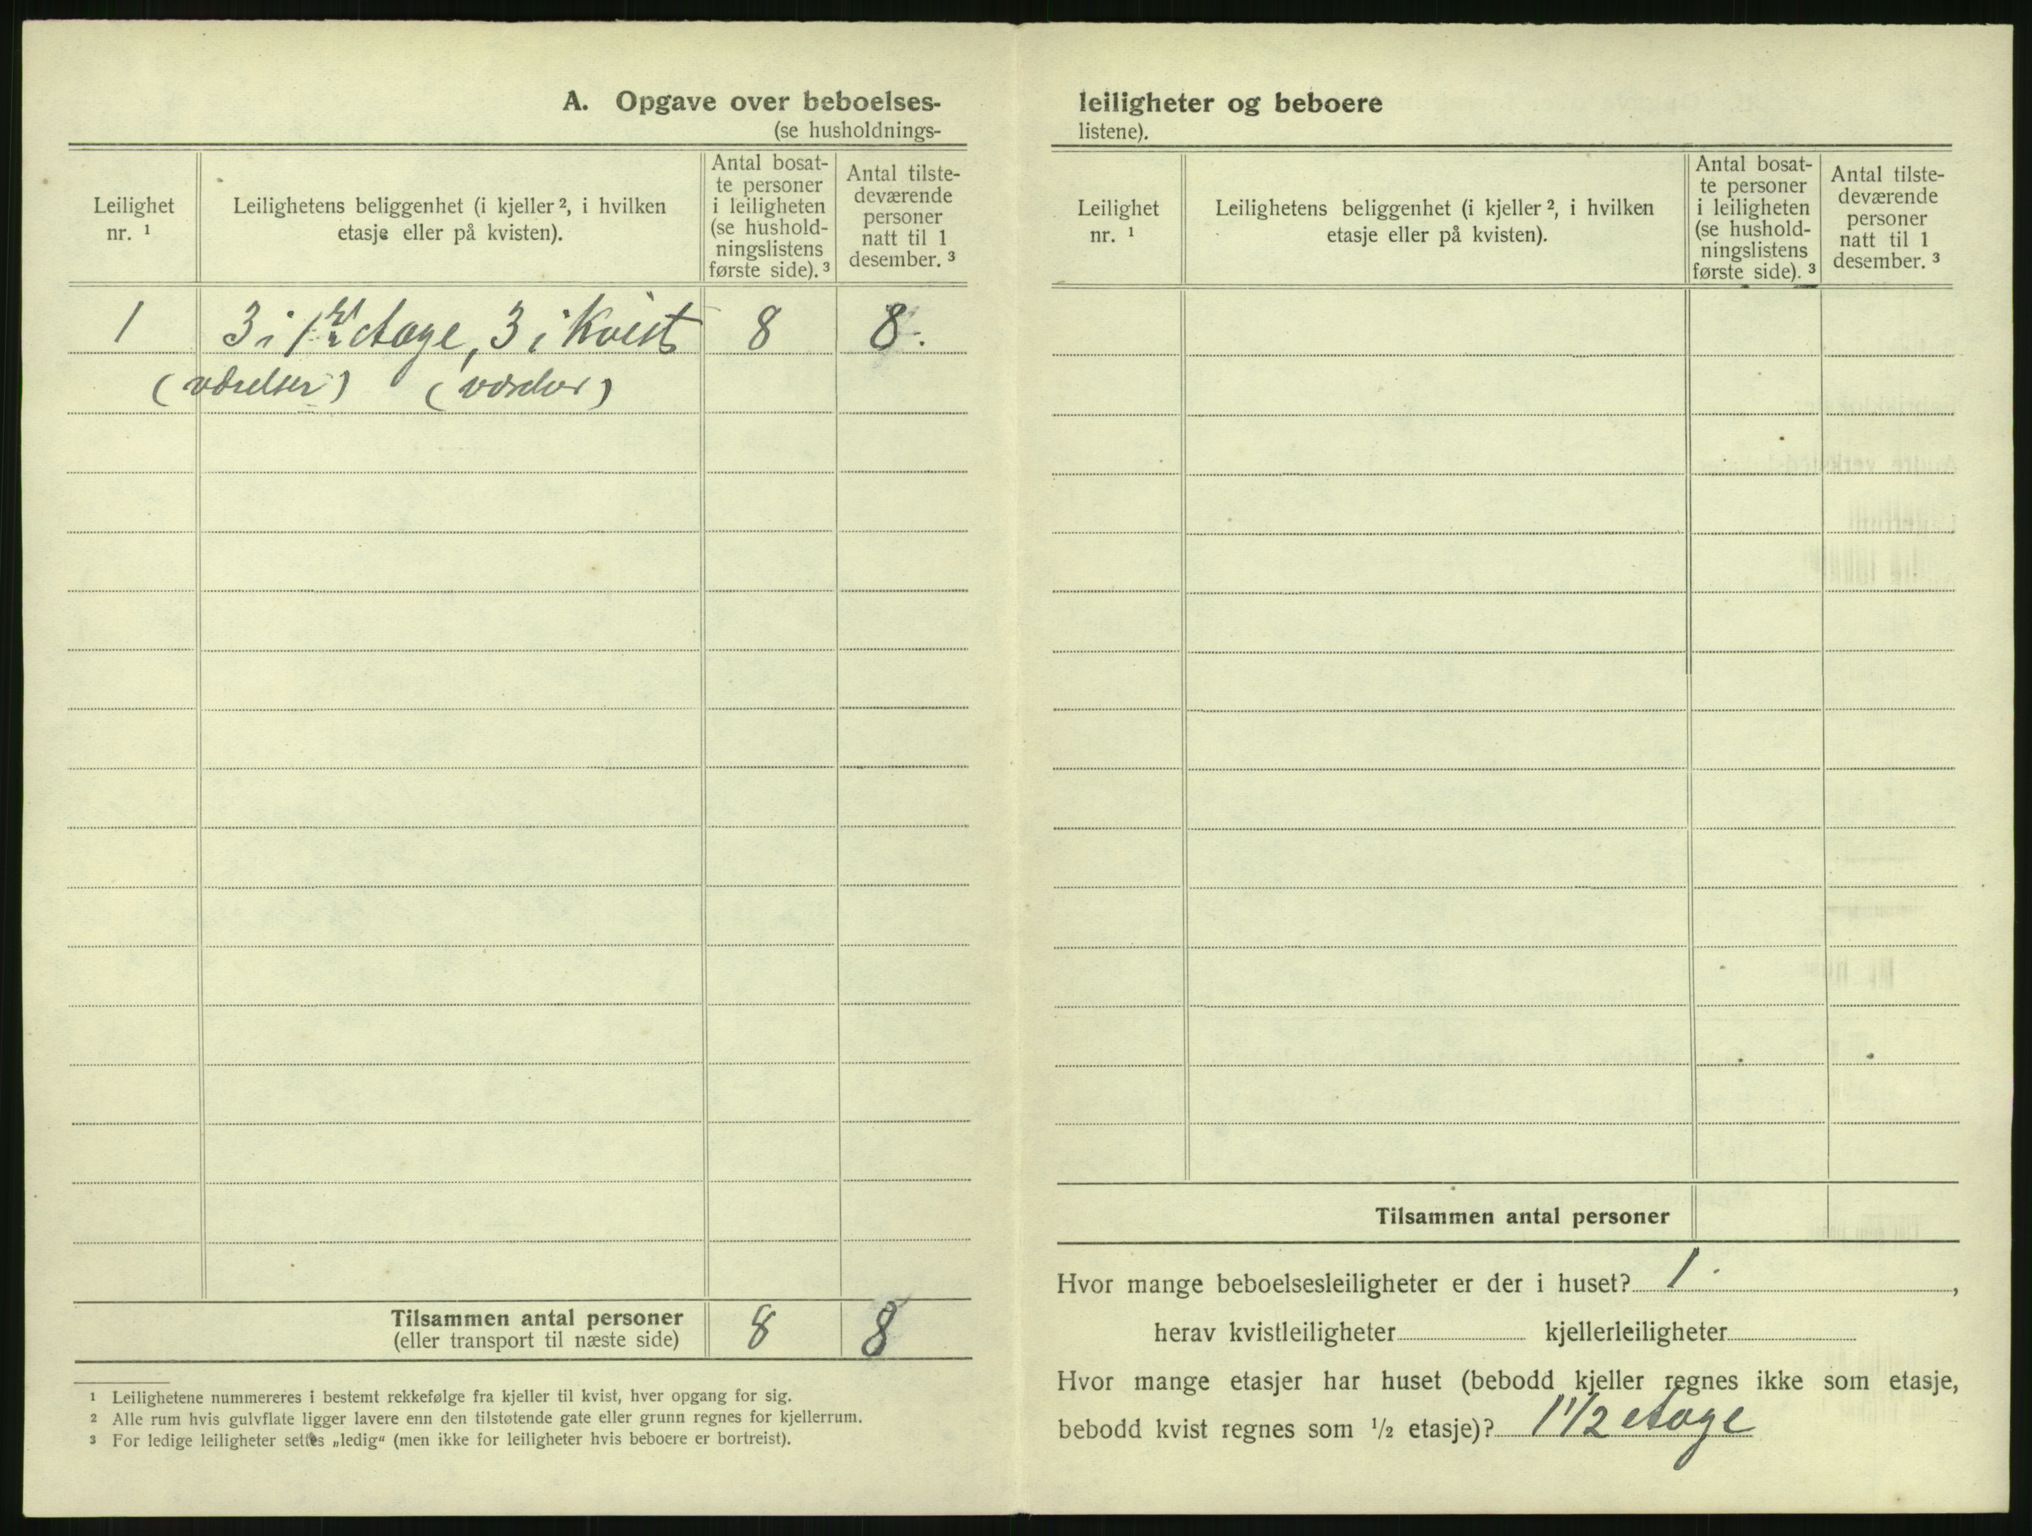 A. Opgave over beboelses-
(se husholdnings-
Leilighet
nr. ¹
Leilighetens beliggenhet (i kjeller ², i hvilken
etasje eller på kvisten).
Antal bosat-
te personer
i leiligheten
(se hushold-
ningslistens
første side). ³
Antal tilste-
deværende
personer
natt til 1
desember. ³
1 3 i 1ste Etage, 3 i Kvist 8 8.
(værelser) (værelser)
Tilsammen antal personer
(eller transport til næste side)
8 8
¹ Leilighetene nummereres i bestemt rekkefølge fra kjeller til kvist, hver opgang for sig.
² Alle rum hvis gulvflate ligger lavere enn den tilstøtende gate eller grunn regnes for kjellerrum.
³ For ledige leiligheter settes „ledig“ (men ikke for leiligheter hvis beboere er bortreist).
leiligheter og beboere
listene).
Leilighet
nr. ¹
Leilighetens beliggenhet (i kjeller ², i hvilken
etasje eller på kvisten).
Antal bosat-
te personer
i leiligheten
(se hushold-
ningslistens
første side). ³
Antal tilste-
deværende
personer
natt til 1
desember. ³
Tilsammen antal personer
Hvor mange beboelsesleiligheter er der i huset? 1.,
herav kvistleiligheter kjellerleiligheter
Hvor mange etasjer har huset (bebodd kjeller regnes ikke som etasje,
bebodd kvist regnes som ½ etasje)? 1 1/2 etage